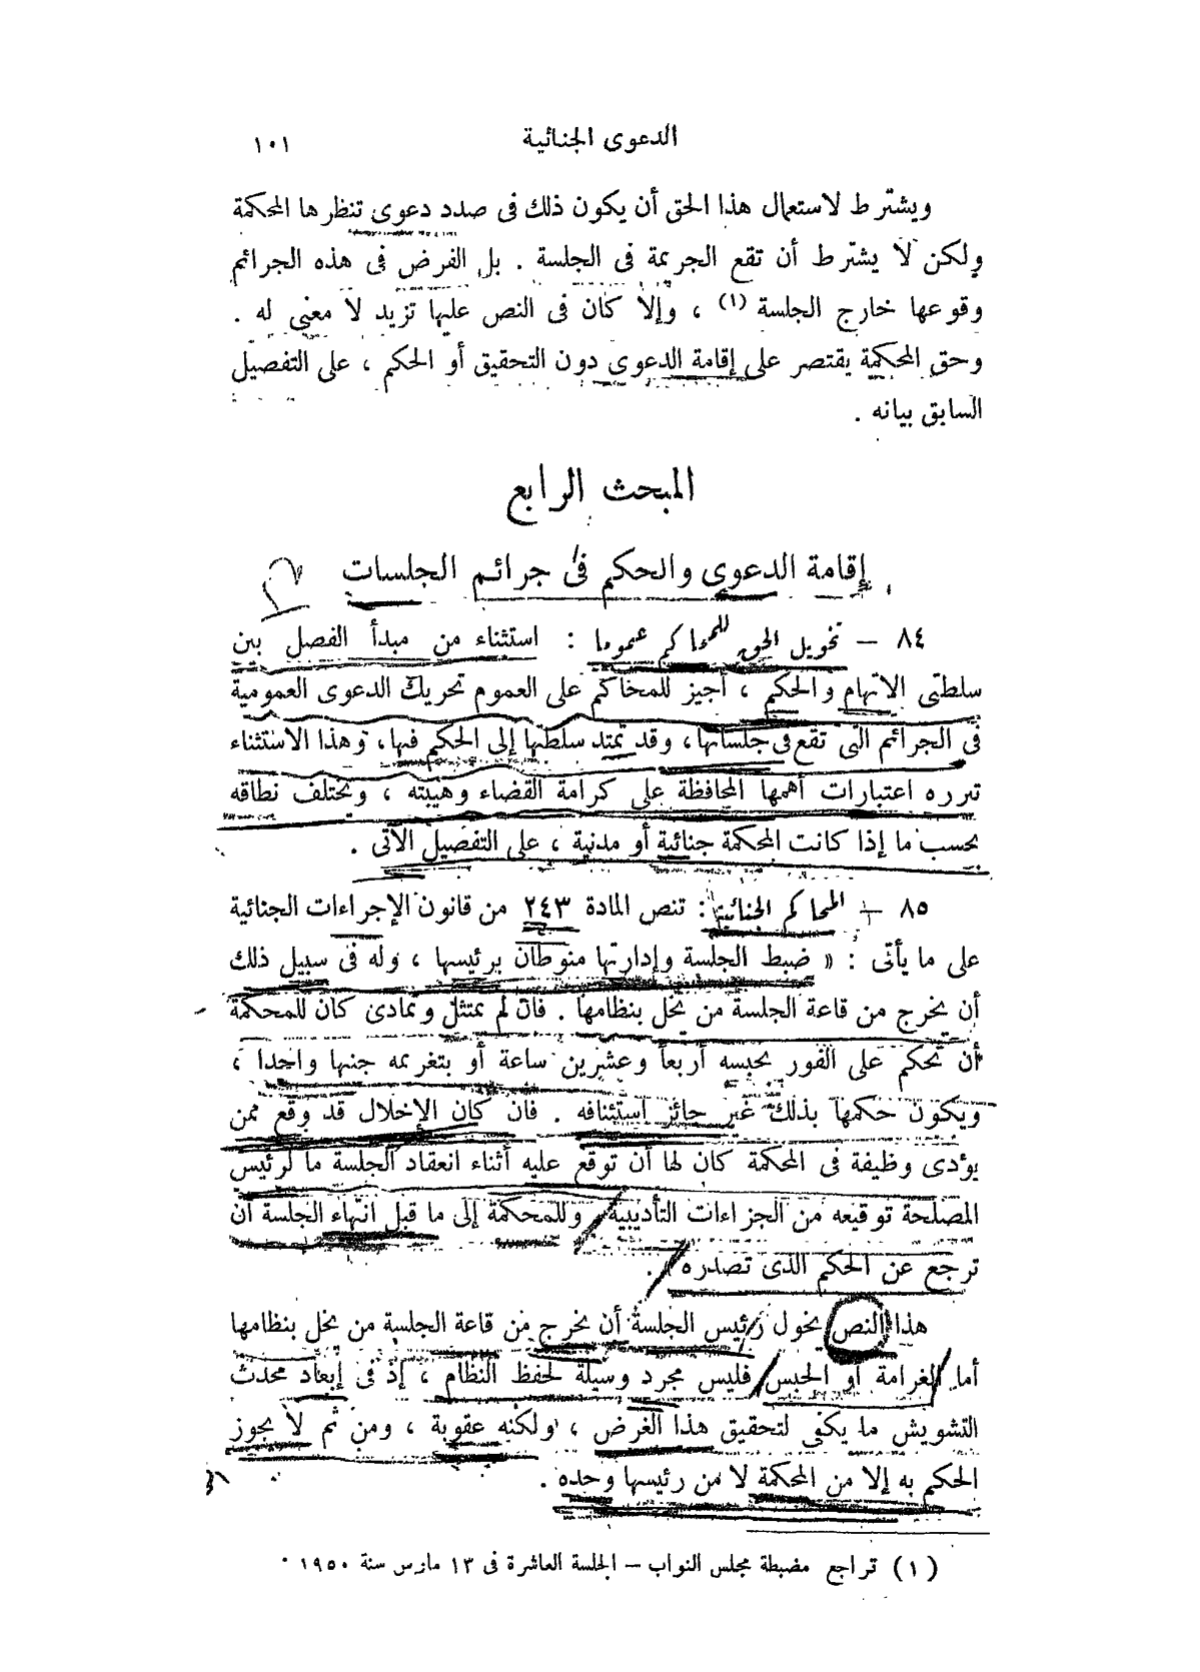 الدعوى الجنائية ١٠١
ويشترط لاستعمال هذا الحق أن يكون ذلك فى صدد دعوى تنظرها المحكمة
ولكن لا يشترط أن تقع الجريمة فى الجلسة . بل الفرض فى هذه الجرائم
وقوعها خارج الجلسة (١) ، وإلا كان فى النص عليها تزيد لا معنى له .
وحق المحكمة يقتصر على إقامة الدعوى دون التحقيق أو الحكم ، على التفصيل
السابق بيانه .
المبحث الرابع
إقامة الدعوى والحكم فى جرائم الجلسات
٨٤ – تخويل الحق للمحاكم عموما : استثناء من مبدأ الفصل بين
سلطتى الاتهام والحكم ، أجيز للمحاكم على العموم تحريك الدعوى العمومية
فى الجرائم التى تقع فى جلساتها ، وقد تمتد سلطتها إلى الحكم فيها ، وهذا الاستثناء
تبرره اعتبارات أهمها المحافظة على كرامة القضاء وهيبته ، ويختلف نطاقه
بحسب ما إذا كانت المحكمة جنائية أو مدنية ، على التفصيل الآتى .
٨٥ – المحاكم الجنائية : تنص المادة ٢٤٣ من قانون الإجراءات الجنائية
على ما يأتى : « ضبط الجلسة وإدارتها منوطان برئيسها ، وله فى سبيل ذلك
أن يخرج من قاعة الجلسة من يخل بنظامها . فان لم يمتثل وتمادى كان للمحكمة
أن تحكم على الفور بحبسه أربعاً وعشرين ساعة أو بتغريمه جنيها واحدا ،
ويكون حكمها بذلك غير جائز استئنافه . فان كان الإخلال قد وقع ممن
يؤدى وظيفة فى المحكمة كان لها أن توقع عليه أثناء انعقاد الجلسة ما لرئيس
المصلحة توقيعه من الجزاءات التأديبية وللمحكمة إلى ما قبل انتهاء الجلسة أن
ترجع عن الحكم الذى تصدره » .
هذا النص يخول رئيس الجلسة أن يخرج من قاعة الجلسة من يخل بنظامها
أما الغرامة أو الحبس فليس مجرد وسيلة لحفظ النظام ، إذ فى إبعاد محدث
التشويش ما يكفى لتحقيق هذا الغرض ، ولكنه عقوبة ، ومن ثم لا يجوز
الحكم به إلا من المحكمة لا من رئيسها وحده .
(١) تراجع مضبطة مجلس النواب – الجلسة العاشرة فى ١٣ مارس سنة ١٩٥٠ .